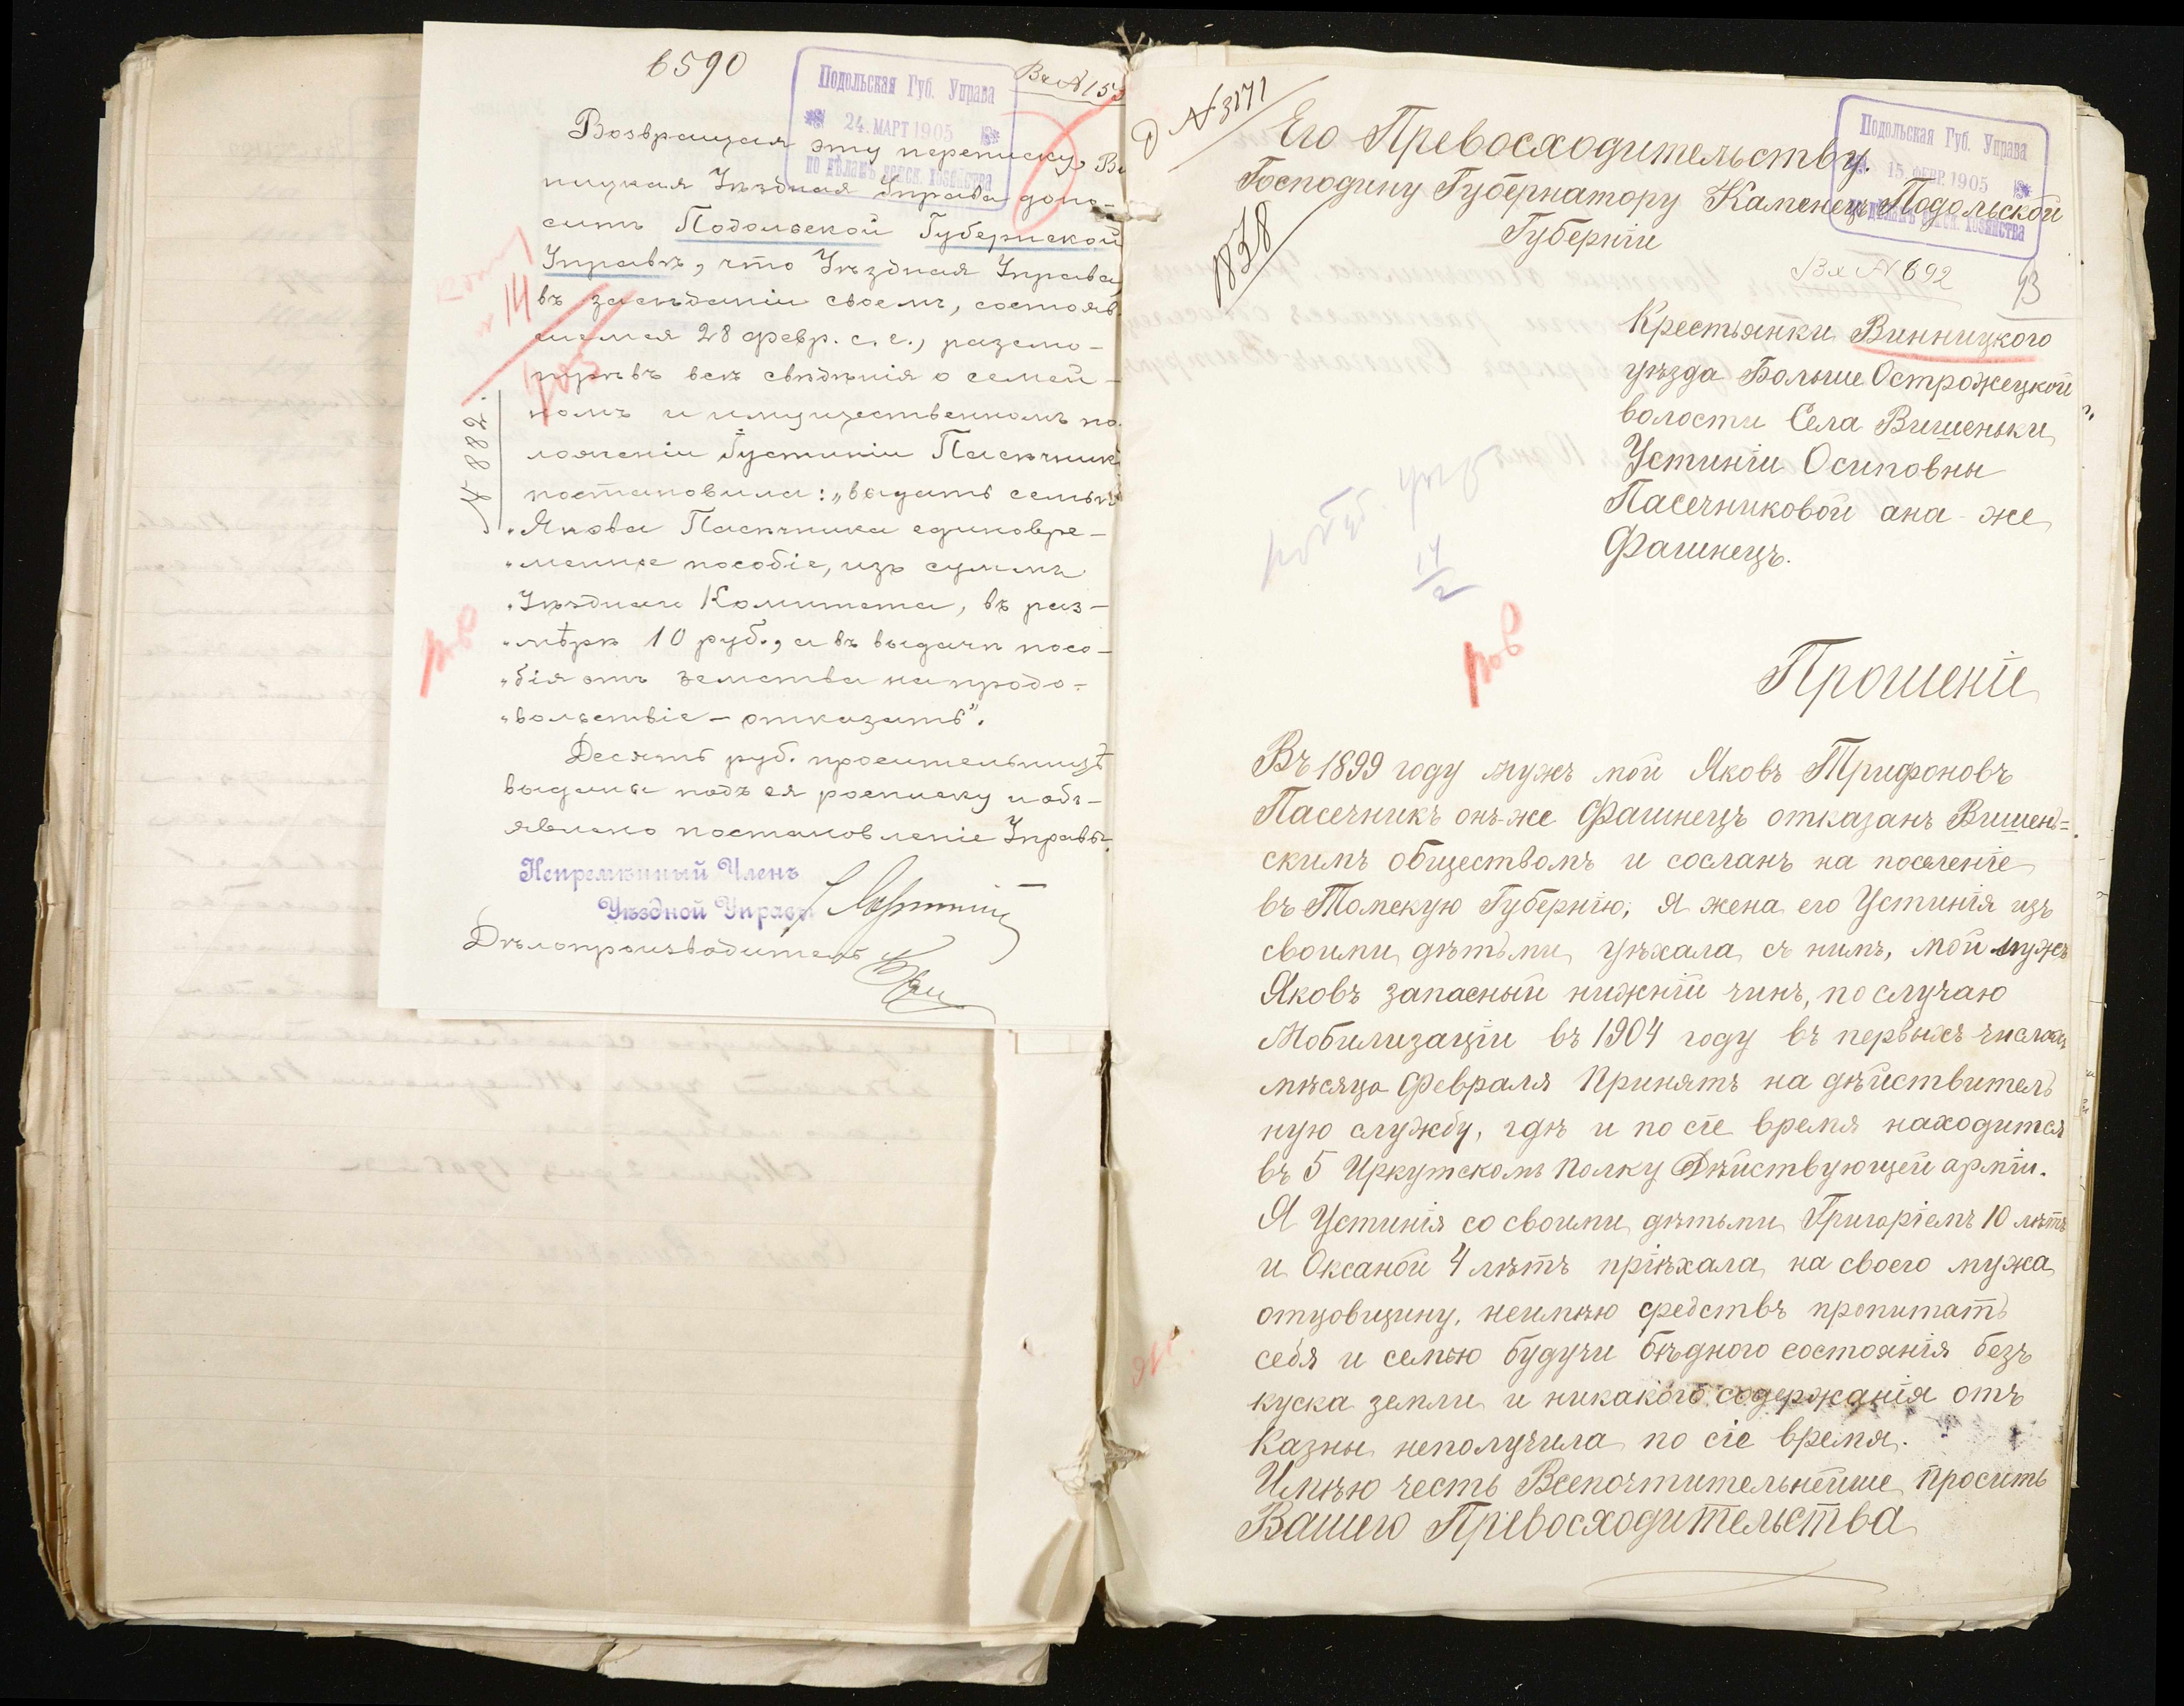 6590
Вх № 153
Подольская Губ. Управа
24. МАРТ 1905
по дѣламъ земск. хозяйства
Возвращая эту переписку, Ви
ницкая Уѣздная Управа доно-
ситъ Подольской Губернской
Управѣ, что Уѣздная Управа,
въ засѣданіи своемъ, состояв
шемся 28 февр. с. г., разсмо-
трѣвъ всѣ свѣдѣнія о семей-
номъ и имущественномъ по
ложеніи Густиніи Пасѣчник
постановила: „выдать семьѣ
„Якова Пасѣчника единовре-
„менное пособіе, изъ суммъ
„Уѣзднаго Комитета, въ раз-
„мѣрѣ 10 руб., а въ выдачѣ посо-
„бія отъ земства на продо-
„вольствіе – отказать”.
Десять руб. просительницѣ
выданы подъ ея росписку и объ-
явлено постановленіе Управы.
Непремѣнный Членъ
Уѣздной Управы
Дѣлопроизводитель
№ 882.
14
№ 3171
1838
Его Превосходительству.
Господину Губернатору Каменецъ Подольской
Губерніи
Подольская Губ. Управа
15. ФЕВР. 1905
по дѣламъ земск. хозяйства
Вх № 692
93
Крестьянки Винницкого
уѣзда Больше Острожецкой
волости Села Вишеньки
Устиніи Осиповны
Пасечниковой ана-же
Фашнецъ.
14
2
Прошеніе
Въ 1899 году мужъ мой Яковъ Трифоновъ
Пасечникъ онъ-же Фашнецъ отказанъ Вишень=
скимъ обществомъ и сосланъ на поселеніе
въ Томскую Губернію, Я жена его Устинія изъ
своими дѣтьми уѣхала съ нимъ, мой мужъ
Яковъ запасный нижній чинъ, по случаю
Мобилизаціи въ 1904 году въ первыхъ числахъ
мѣсяца Февраля Принятъ на дѣйствитель
ную службу, гдѣ и по сіе время находится
въ 5 Иркутскомъ полку Дѣйствующей арміи.
Я Устинія со своими дѣтьми Григоріемъ 10 лѣтъ
и Оксаной 4 лѣтъ пріѣхала на своего мужа
отцовщину, неимѣю средствъ пропитать
себя и семью будучи бѣдного состоянія безъ
куска земли и никакого содержанія отъ
Казны неполучила по сіе время.
Имѣю честь Всепочтительнейше просить
Вашего Превосходительства